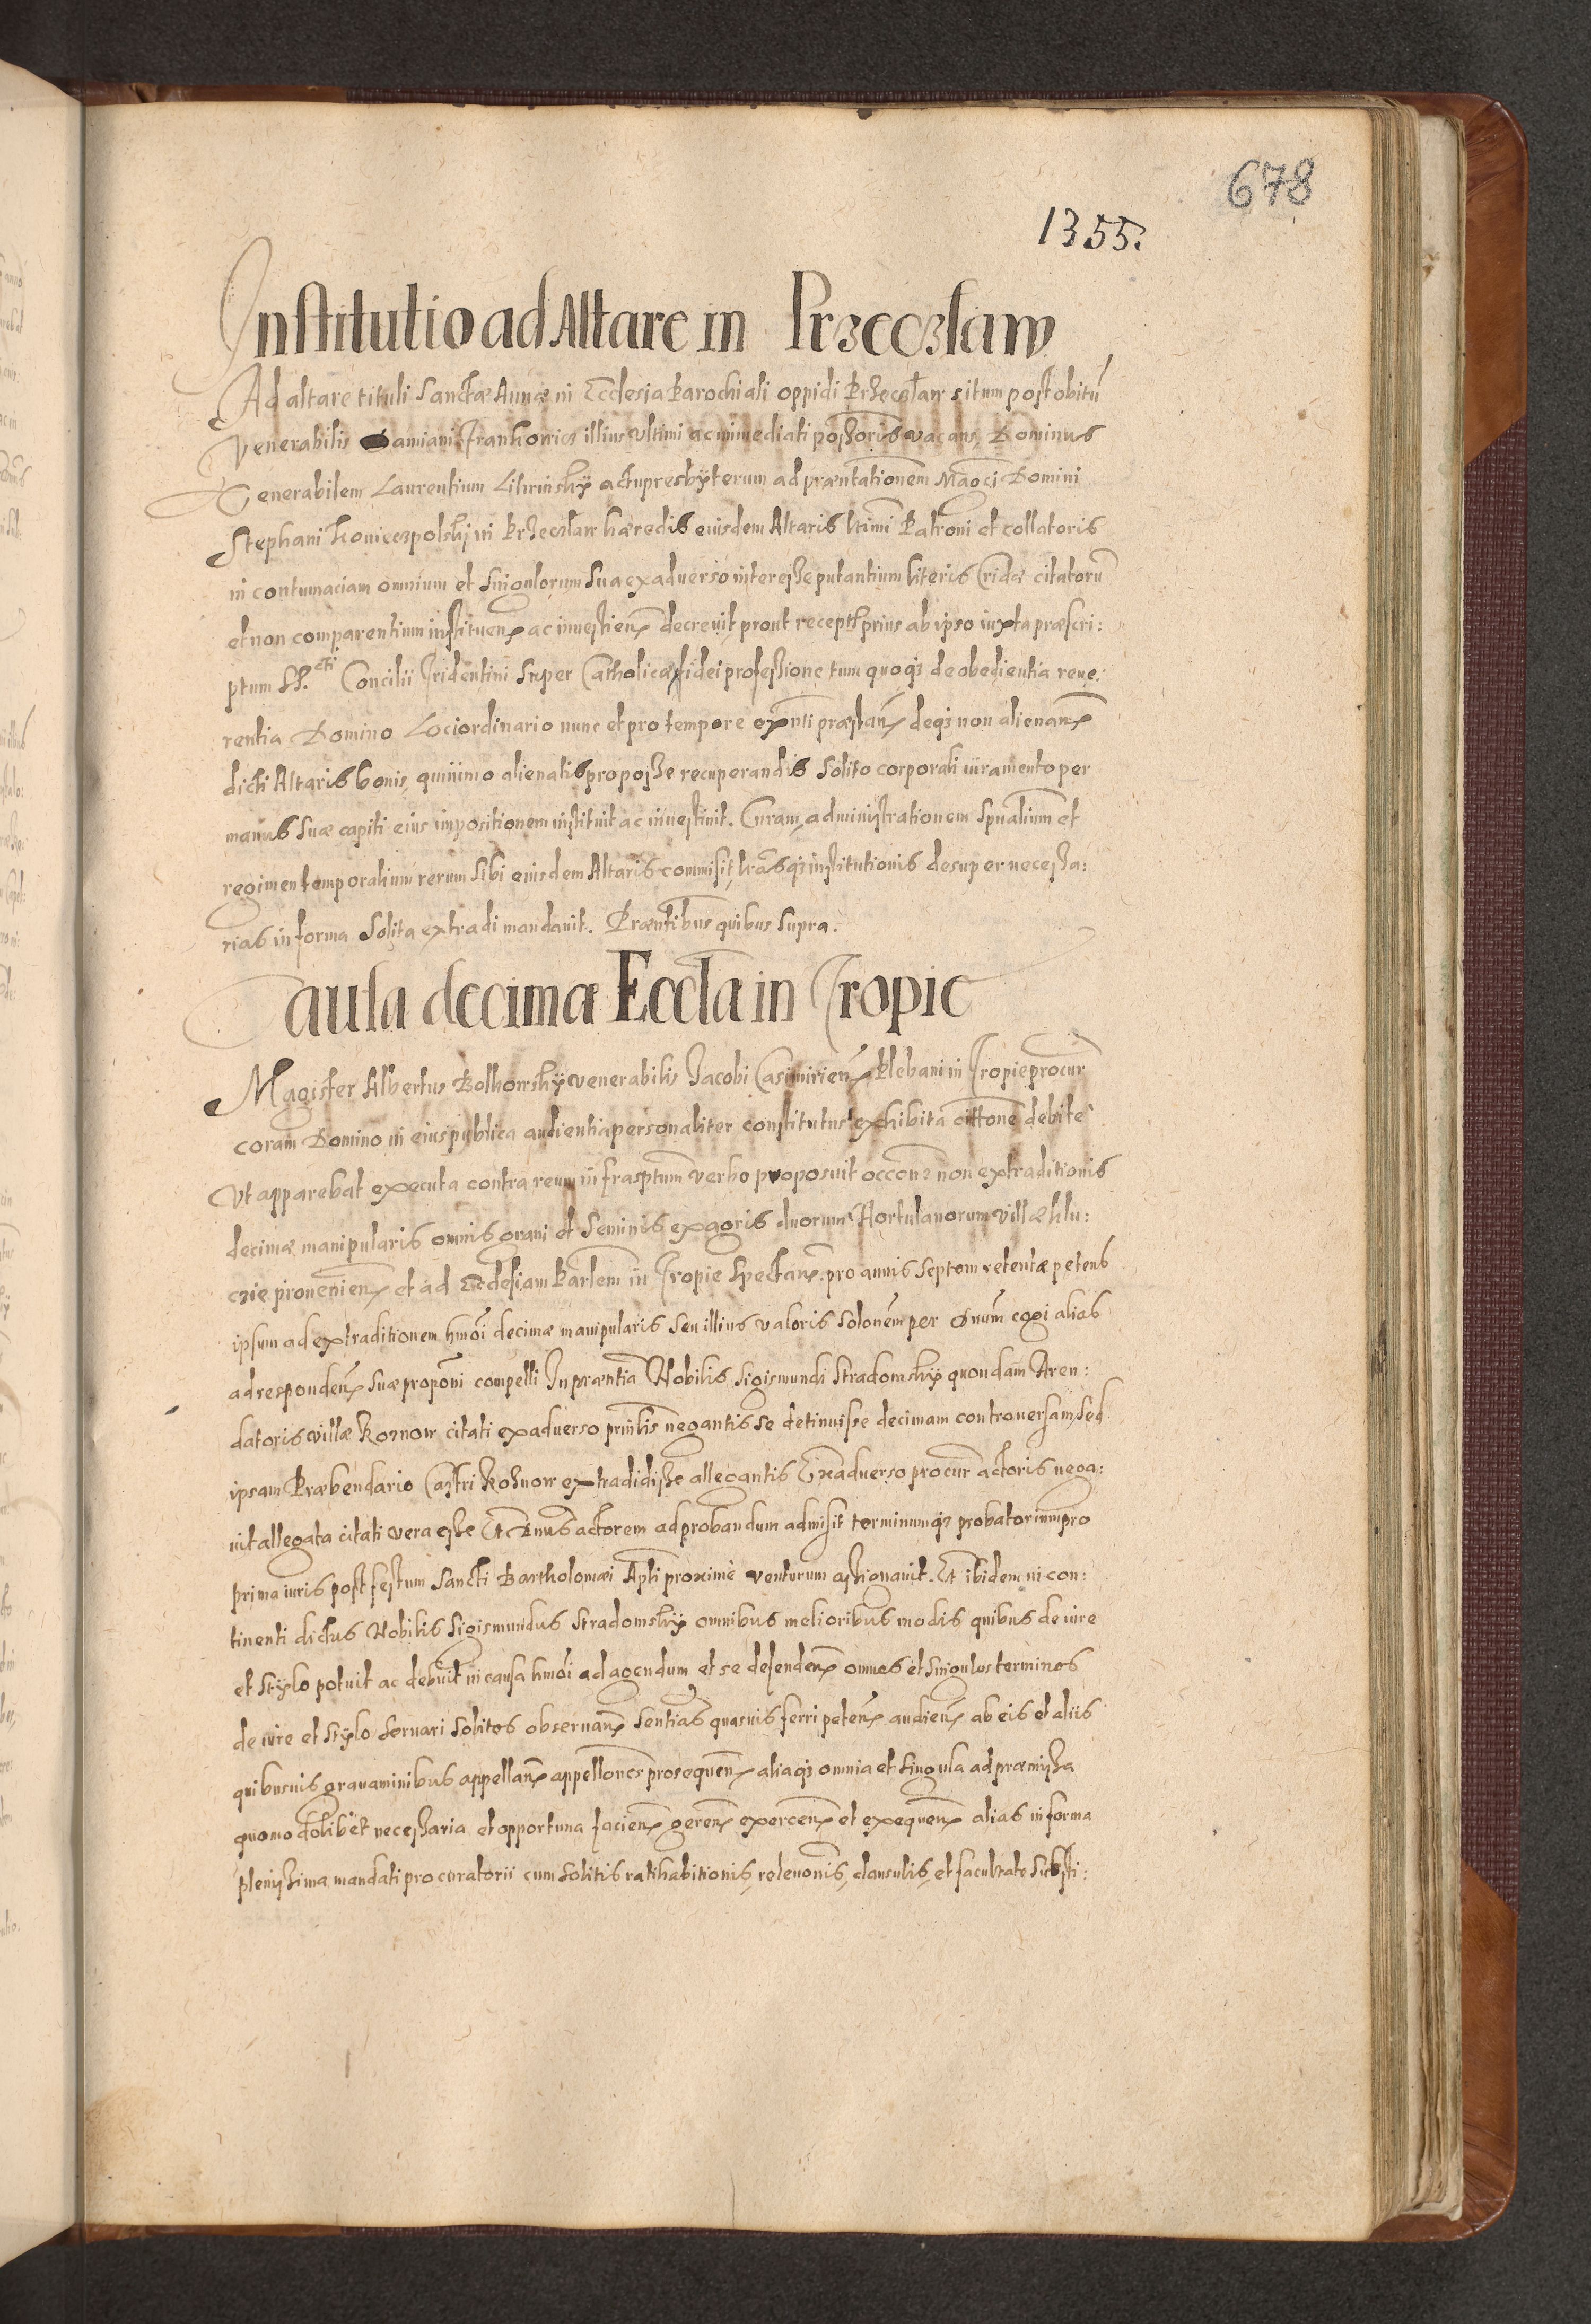 678
1355.
Institutio ad Altare in Przeczław
Ad altare tituli Sanctæ Annæ in Ecclesia Parochiali oppidi Przeczław situm post obitũ
Venerabilis Damiani Frankowicz illius ultimi ac immediati possoris vacans, Dominus
Venerabilem Laurentium actu presbÿterum ad præntationem Magci Domini
Stephani Konieczpolskj in Przeczław hæredis eiusdem Altaris ltimi Patroni et collatoris
in contumaciam omnium et singulorum sua ex aduerso interesse putantium literis Cridæ citatorũ
et non comparentium instituen ac inuestien decreuit, prout recepta prius ab ipso iuxta præscri:
ptum SS.cti Concilii Tridentini super Catholicæ fidei professione tum quoqʒ de obedientia reue:
rentia Domino Loci ordinario nunc et pro tempore exnti præstan deqʒ non alienan
dicti Altaris bonis, quinimo alienatis pro posse recuperandis solito corporali iuramento per
manus suæ capiti eius impositionem instituit ac inuestiuit. Curam, administrationem spualium et
regimen temporalium rerum sibi eiusdem Altaris commisit, lrasqʒ institutionis desuper necessa:
rias in forma solita extradi mandauit. Præntibus quibus supra.
Causa decimæ Eccla in Tropie
Magister Albertus Bolkowskÿ venerabilis Jacobi Casimirien Plebani in Tropie procur
coram Domino in eius publica audientia personaliter constitutus exhibita cittone debite
Vt apparebat executa contra reum infrasptum verbo proposuit occone non extraditionis
decimæ manipularis omnis grani et seminis ex agris duorum Hortulanorum villæ Hlu:
czie prouenien et ad Ecclesiam Parlem in Tropie spectan. pro annis septem retentæ petens
ipsum ad extraditionem hmoi decimæ manipularis seu illius valoris solonem per Dnum cogi alias
ad responden suæ proponi compelli In præntia Nobilis Sigismundi Stradomskÿ quondam Aren:
datoris villæ Roznow citati ex aduerso prinlis negantis se detinuisse decimam controuersam, sed
ipsam Præbendario Castri Rosnow extradidisse allegantis Ex aduerso procur actoris nega:
uit allegata citati vera esse Et Dnus actorem ad probandum admisit terminumqʒ probatorium pro
prima iuris post festum Sancti Bartholomæi Apli proximè venturum assignauit. Et ibidem in con:
tinenti dictus Nobilis Sigismundus Stradomskÿ omnibus melioribus modis quibus de iure
et stÿlo potuit ac debuit in causa hmoi ad agendum et se defenden omnes et singulos terminos
de iure et stÿlo seruari solitos obseruan sentias quasuis ferri peten audien ab eis et aliis
quibusuis grauaminibus appellan appellones prosequen, aliaqʒ omnia et singula ad præmissa
quomodolibet necessaria et opportuna facien geren exercen et exequen alias in forma
plenissima mandati procuratorii cum solitis ratihabitionis, releuonis, clausulis, et facultate substi: